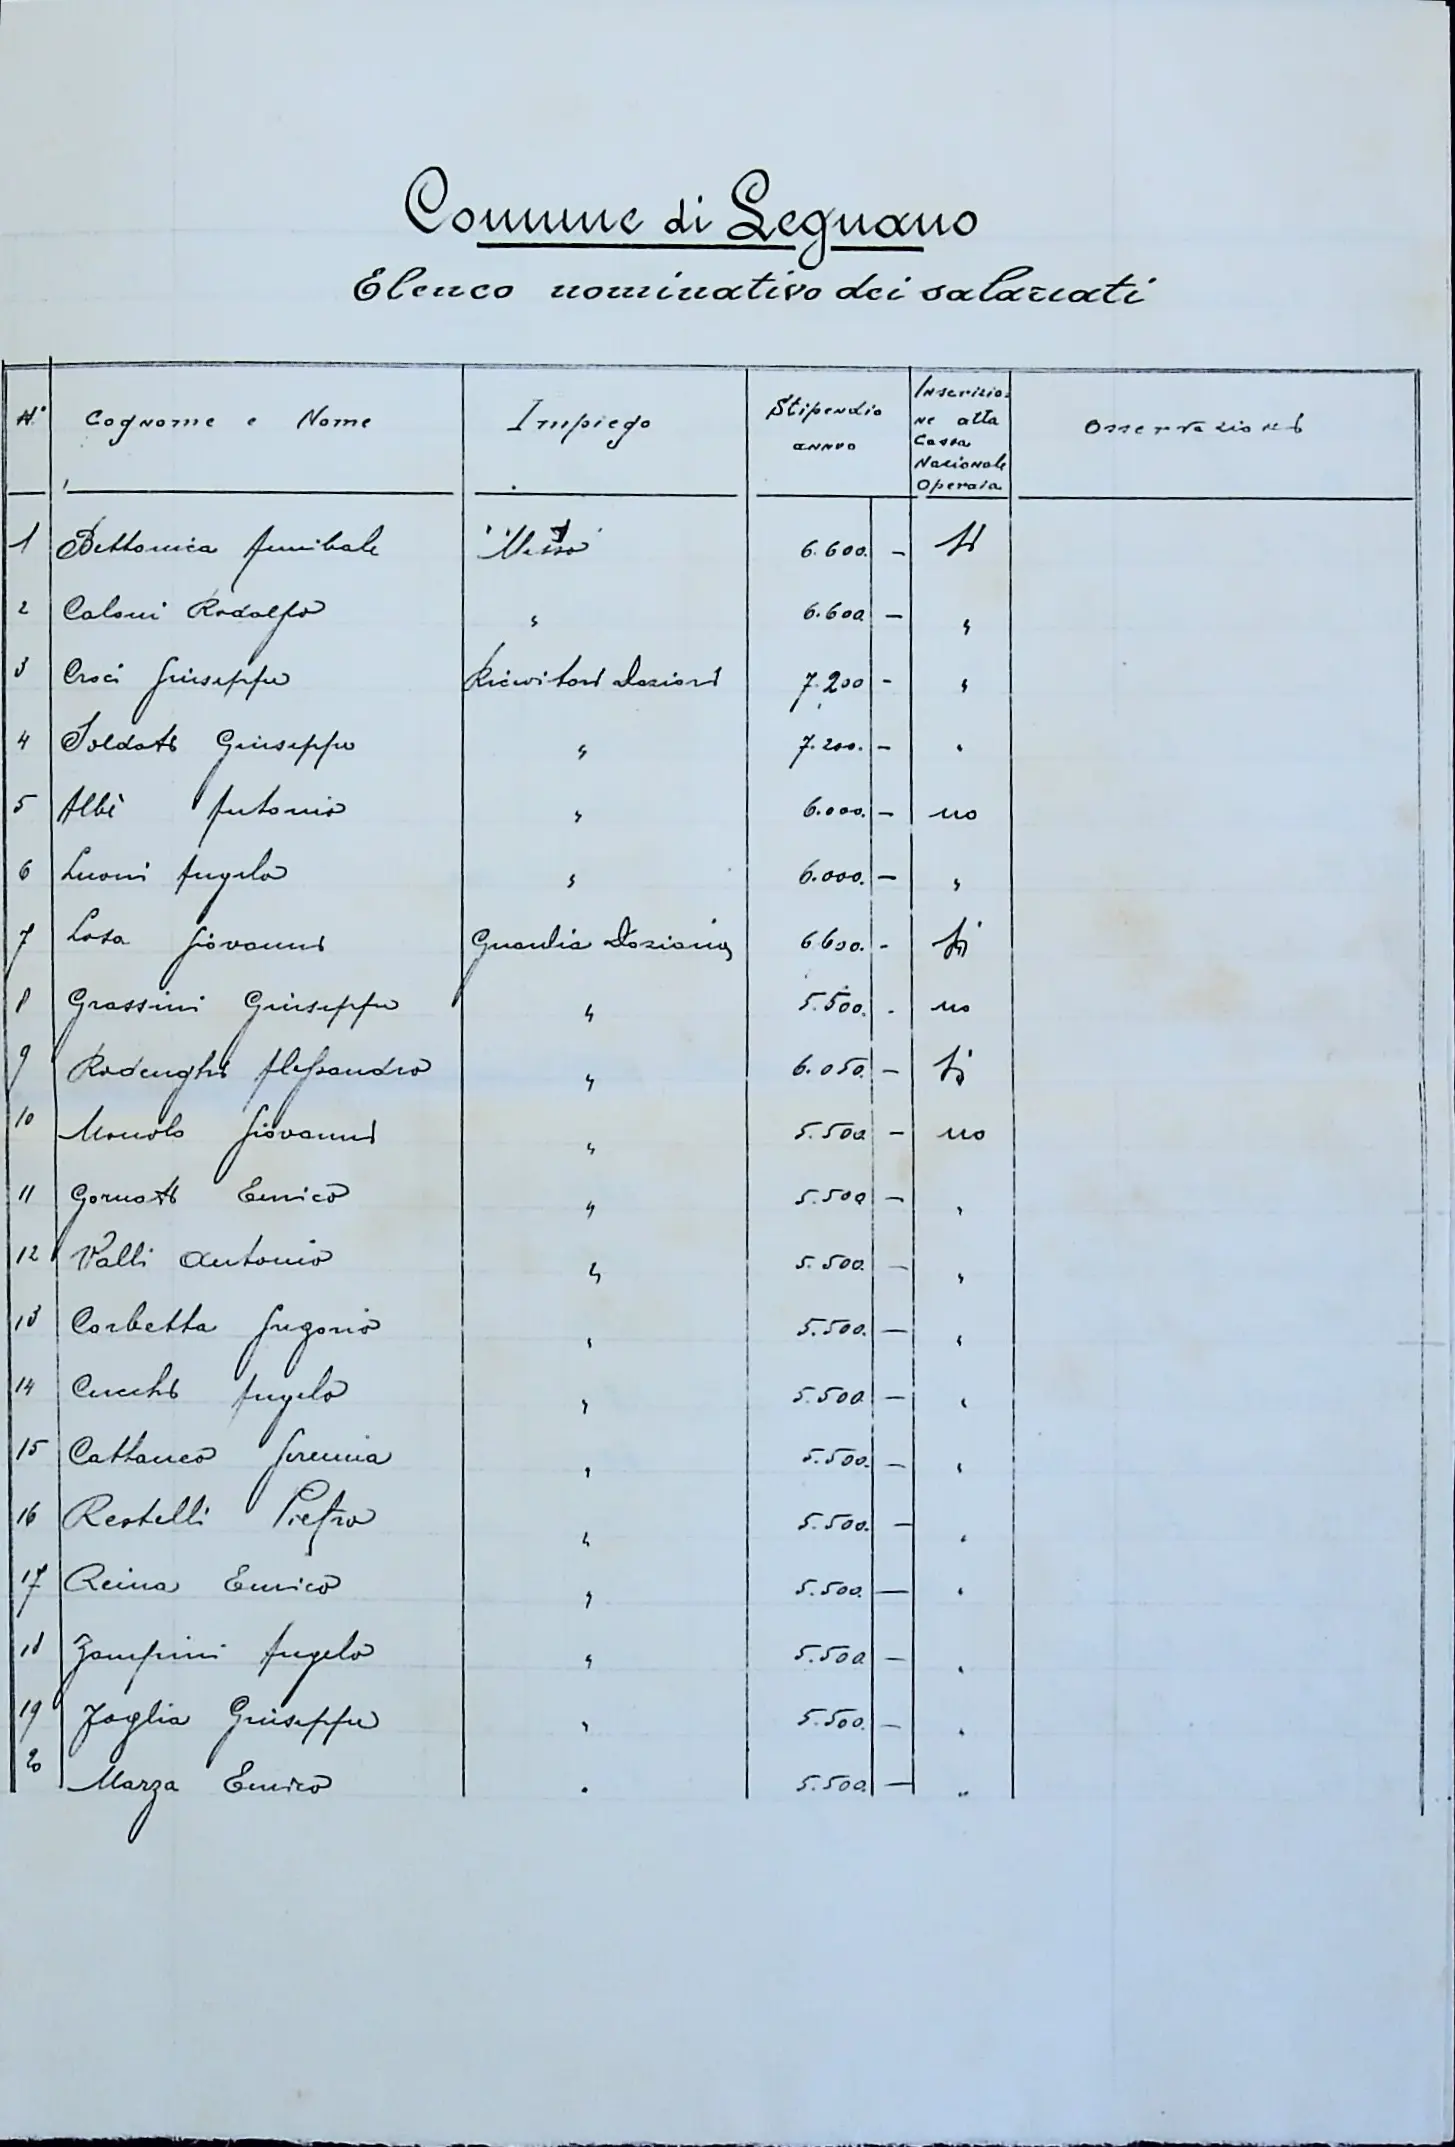 Comune di Legnano
Elenco nominativo dei salariati
N° Cognome e Nome Impiego Stipendio annuo Inscrizione alla Cassa Nazionale Operaia Osservazioni
1 Bettonica Annibale Messo 6.600. — Si
2 Caloni Rodolfo " 6.600 — "
3 Croci Giuseppe Ricevitori Daziari 7.200 — "
4 Soldati Giuseppe " 7.200. — "
5 Albè Antonio " 6.000. — no
6 Luoni Angelo " 6.000. — "
7 Losa Giovanni Guardia Daziaria 6600. — Si
8 Grassini Giuseppe " 5.500. - no
9 Rodenghi Alessandro " 6.050. — Si
10 Giovanni " 5.500 — no
11 Gornati Enrico " 5.500 — "
12 Valli Antonio " 5.500. — "
13 Corbetta Gregorio " 5.500. — "
14 Cucchi Angelo " 5.500 — "
15 Cattaneo Geremia " 5.500. — "
16 Restelli Pietro " 5.500. — "
17 Reina Enrico " 5.500. — "
18 Zampini Angelo " 5.500 — "
19 Zoglia Giuseppe " 5.500. — "
20 Marza Enrico " 5.500. — "